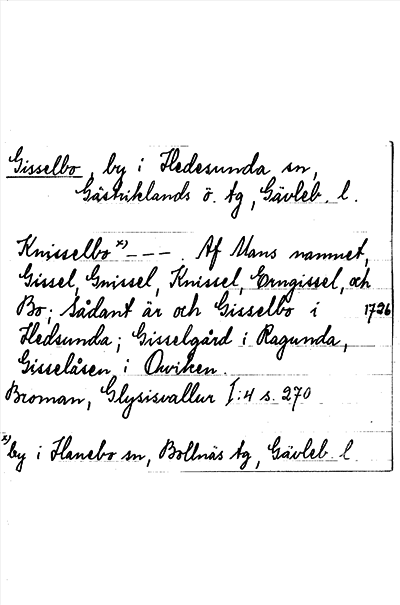 Gisselbo, by i Hedesunda sn,
Gästriklands ö. tg, Gävleb. l.
Knisselbo x) --- . Af Mans namnet,
Gissel, Gnissel, Knissel, Erngissel, och
Bo; Sådant är och Gisselbo i 1796
Hedsunda; Gisselgård i Ragunda,
Gisselåsen i Owiken.
Broman, Glysisvallur I:4 s. 270
x) by i Hanebo sn, Bollnäs tg, Gävleb. l.